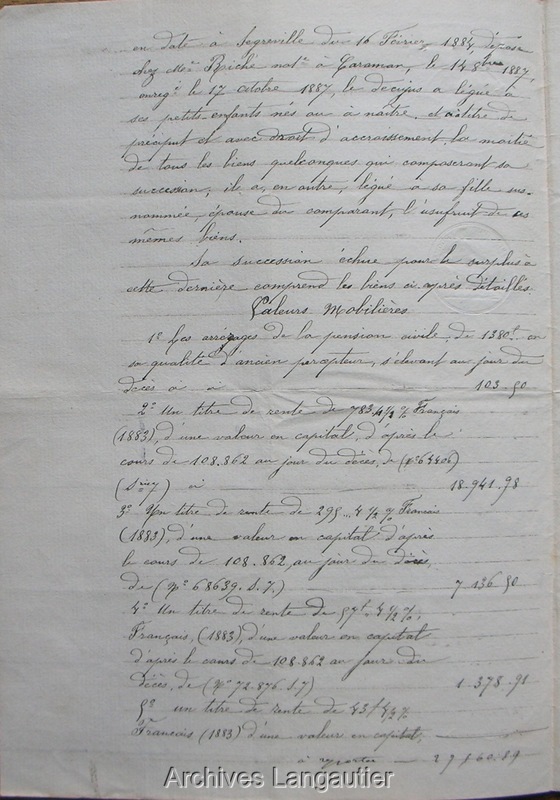 en date à Segreville du 16 Février 1884, déposé
chez Me Biché notre à Caraman, le 14 8bre 1887,
enregé le 17 octobre 1887, le decujus a légué à
ses petits enfants nés ou à naître, et à titre de
préciput et avec droit d'accroissement, la moitié
de tous les biens quelconques qui composeront sa
succession, il a, en outre, légué à sa fille sus-
nommée, épouse du comparant, l'usufruit de ces
mêmes biens.
La succession échue pour le surplus à
cette dernière comprend les biens ci après détaillés
Valeurs Mobilières
1o Les arrérages de la pension civile, de 1380f en
sa qualité d'ancien percepteur, s'élevant au jour du
décès à 103-50
2o Un titre de rente de 783 4 1/2 % Français
(1883), d'une valeur en capital, d'après le
cours de 108.862 au jour du décès, de (No 64406)
à 18.941-98
3o Un titre de rente de 295 4 1/2 % Français
(1883), d'une valeur en capital d'après
le cours de 108.862, au jour du décès,
de (No 68639. S. 7.) 7 136 50
4o Un titre de rente de 57f 4 1/2 %,
Français, (1883), d'une valeur en capital
d'après le cours de 108.862 au jour du
décès, de (No 72.876. S. 7) 1.378-91
5o un titre de rente de 43f 4 1/2 %
Français (1883) d'une valeur en capital,
à reporter 27560.89
Archives Langautier